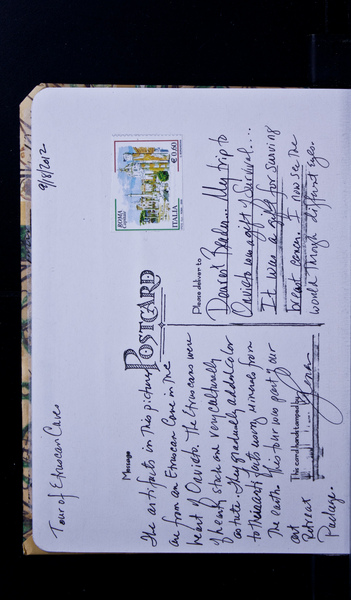 Tour of Etruscan Caves
9/8/2012
POSTCARD
ROMA
ITALIA
€ 0,60
Message
The artifacts in this picture
are from an Etruscan Cave in the
heart of Orvieto. The Etruscans were
of hearty stock and very culturally
astute. They gradually added color
to their artifacts using minerals from
the earth. This tour was part of our
art
Retreat
Package.
This card hand stamped by
Please deliver to
Dearest Reader... My trip to
Orvieto was a gift of Survival...
It was a gift for surviving
breast cancer. I now see the
world through different eyes.